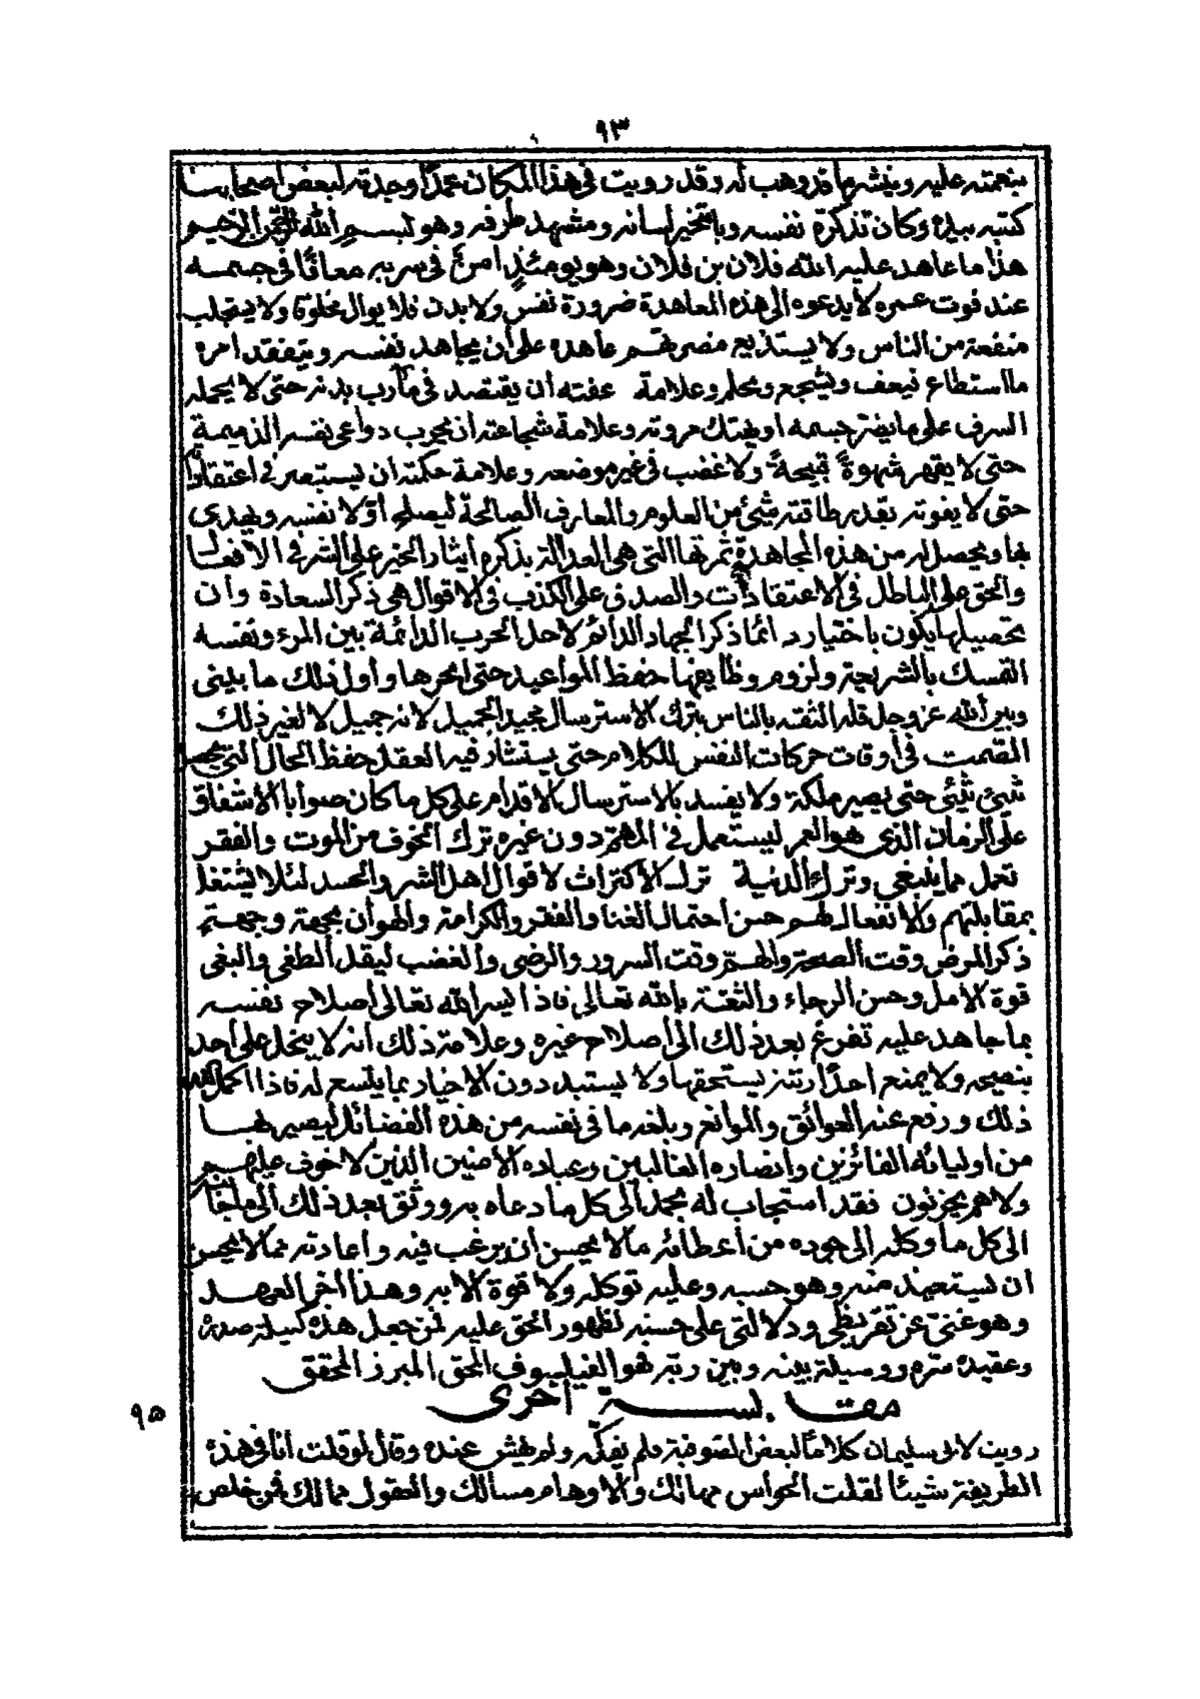 ٩٣
بنعمته عليه وينشر ما قد وهب له وقد رويت في هذا المكان عهدًا وجدته لبعض أصحابنا
كتبه بيده وكان تذكرة نفسه وبا لسانه ومشهد طرفه وهو لبسم الله الرحمن الرحيم
هذا ما عاهد عليه الله فلان بن فلان وهو يومئذٍ امن في سربه معافًا في جسمه
عند قوت عمره لا يدعوه الى هذه المعاهدة ضرورة نفس ولا بدن فلا يوال مخلوقا ولا يستجلب
منفعة من الناس ولا يستذيع مضرتهم عاهده على أن يجاهد نفسه ويتفقد امره
ما استطاع فيعف ويشجع ويحلم وعلامة عفته أن يقتصد في مآرب بدنه حتى لا يحمله
السرف على ما يضر جسمه او يهتك مروته وعلامة شجاعته ان يحرب دواعي نفسه الذميمة
حتى لا يقهر شهوةً قبيحةً ولا غضب في غير موضعه وعلامة حكمته ان يستبصر في اعتقاداً
حتى لا يفوته بقدر طاقته شئ من العلوم والمعارف الصالحة ليصلح أوّلا نفسه ويهدي
بها ويحصل له من هذه المجاهدة ثمرتها التي هي العدالة بذكره أيثار الخير على الشر في الافعا
والحق على الباطل في الاعتقادات والصدق على الكذب في الاقوال هي ذكر السعادة وان
تحصيلها يكون باختيار دائما ذكر الجهاد الدائم لاجل الحرب الدائمة بين المرء ونفسه
التمسك بالشريعة ولزوم وظايفها حفظ المواعيد حتى انجزها وأول ذلك ما بيني
وبين الله عز وجل قلة الثقة بالناس بترك الاسترسال محبة الجميل لانه جميل لا لغير ذلك
الصمت في أوقات حركات النفس للكلام حتى يستشار فيه العقل حفظ الحال التي تحصل
شئ شئ حتى يصير ملكة ولا يفسد بالاسترسال الاقدام على كل ما كان صوابا الاشفاق
على الزمان الذي هو العمر ليستعمل في المهم دون غيره ترك الخوف من الموت والفقر
تعمل ما ينبغي وترك الدنية ترك الاكتراث لاقوال اهل الشر والحسد لئلا يشتغل
بمقابلتهم والانفعال لهم حسن احتمال الغنا والفقر والكرامة والهوان بجهة وجهة
ذكر المرض وقت الصحة والهم وقت السرور والرضى والغضب ليقل الطغي والبغي
قوة الامل وحسن الرجاء والثقة بالله تعالى فاذا يسر الله تعالى أصلاح نفسه
بما جاهد عليه تفرغ بعد ذلك الى أصلاح غيره وعلامة ذلك أنه لا يبخل على أحد
بنصيحه ولا يمنع احدًا رتبة يستحقها ولا يستبد دون الاخيار بما يتسع له فاذا اكمل الله
ذلك ورفع عنه العوائق والموانع وبلغه ما في نفسه من هذه الفضائل ليصير بها
من اوليائه الفائزين وانصاره الغالبين وعباده الامنين الذين لا خوف عليهم
ولا هم يحزنون فقد استجاب له بحمد الى كل ما دعاه به ووثق بعد ذلك الى ملجأ
الى كل ما وكله الى جوده من أعطائه مالا يحسن أن يرغب فيه وأعاذته مما لا يحسن
ان يستعيذ منه وهو حسبه وعليه توكله ولا قوة الا به وهذا اخر العهد
وهو غني عن تقريظي ودلالتي على حسنه لظهور الحق عليه فمن جعل هذه كيلة صدره
وعقيدة سره ووسيلة بينه وبين ربه فهو الفيلسوف المحق المبرز المحقق
مقابسة أخرى
٩٥
رويت لابي سليمان كلامًا لبعض المتصوفة فلم يفكه ولم يهش عنده وقال لو قلت أنا في هذه
الطريقة شيئا لقلت الحواس مهالك والاوهام مسالك والعقول ممالك فمن خلص